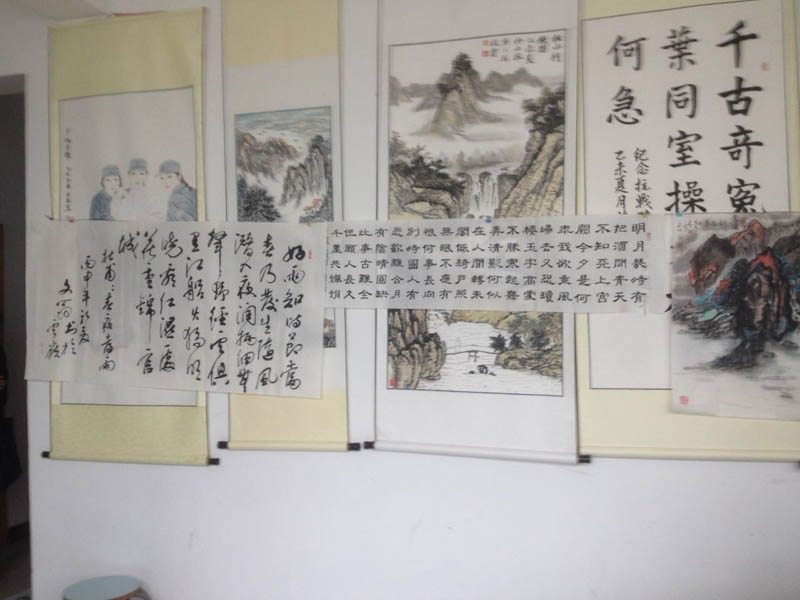 千古奇冤
葉同室操
何急
纪念抗戰
乙未夏月
明月幾時有
把酒問青天
不知天上宮
闕今夕是何
年我欲乘風
歸去又恐瓊
樓玉宇高處
不勝寒起舞
弄清影何似
在人間轉朱
閣低綺戶照
無眠不應有
恨何事長向
別時圓人有
悲歡離合月
有陰晴圓缺
此事古難全
但願人長久
千里共嬋娟
好雨知时節當
春乃發生隨風
潛入夜润物細無
聲野徑雲俱
黑江船火獨明
曉看红濕處
花重錦官
城
杜甫春夜喜雨
丙申年